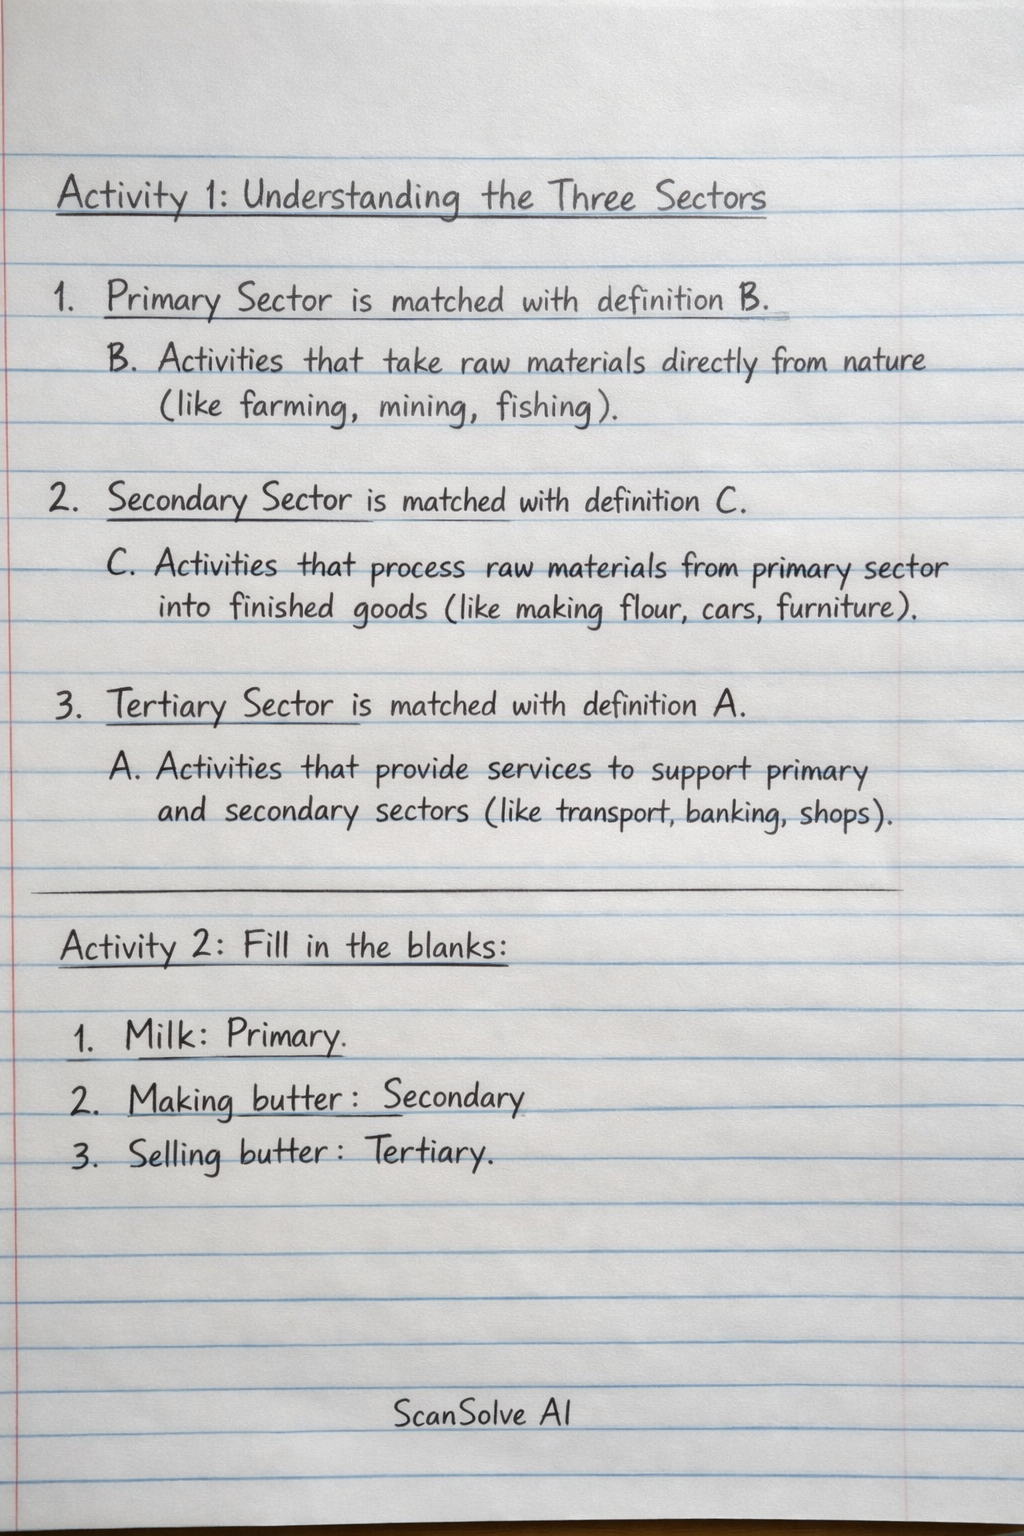 Activity 1: Understanding the Three Sectors
1. Primary Sector is matched with definition B.
B. Activities that take raw materials directly from nature
(like farming, mining, fishing).
2. Secondary Sector is matched with definition C.
C. Activities that process raw materials from primary sector
into finished goods (like making flour, cars, furniture).
3. Tertiary Sector is matched with definition A.
A. Activities that provide services to support primary
and secondary sectors (like transport, banking, shops).
Activity 2: Fill in the blanks:
1. Milk: Primary.
2. Making butter: Secondary
3. Selling butter: Tertiary.
ScanSolve AI